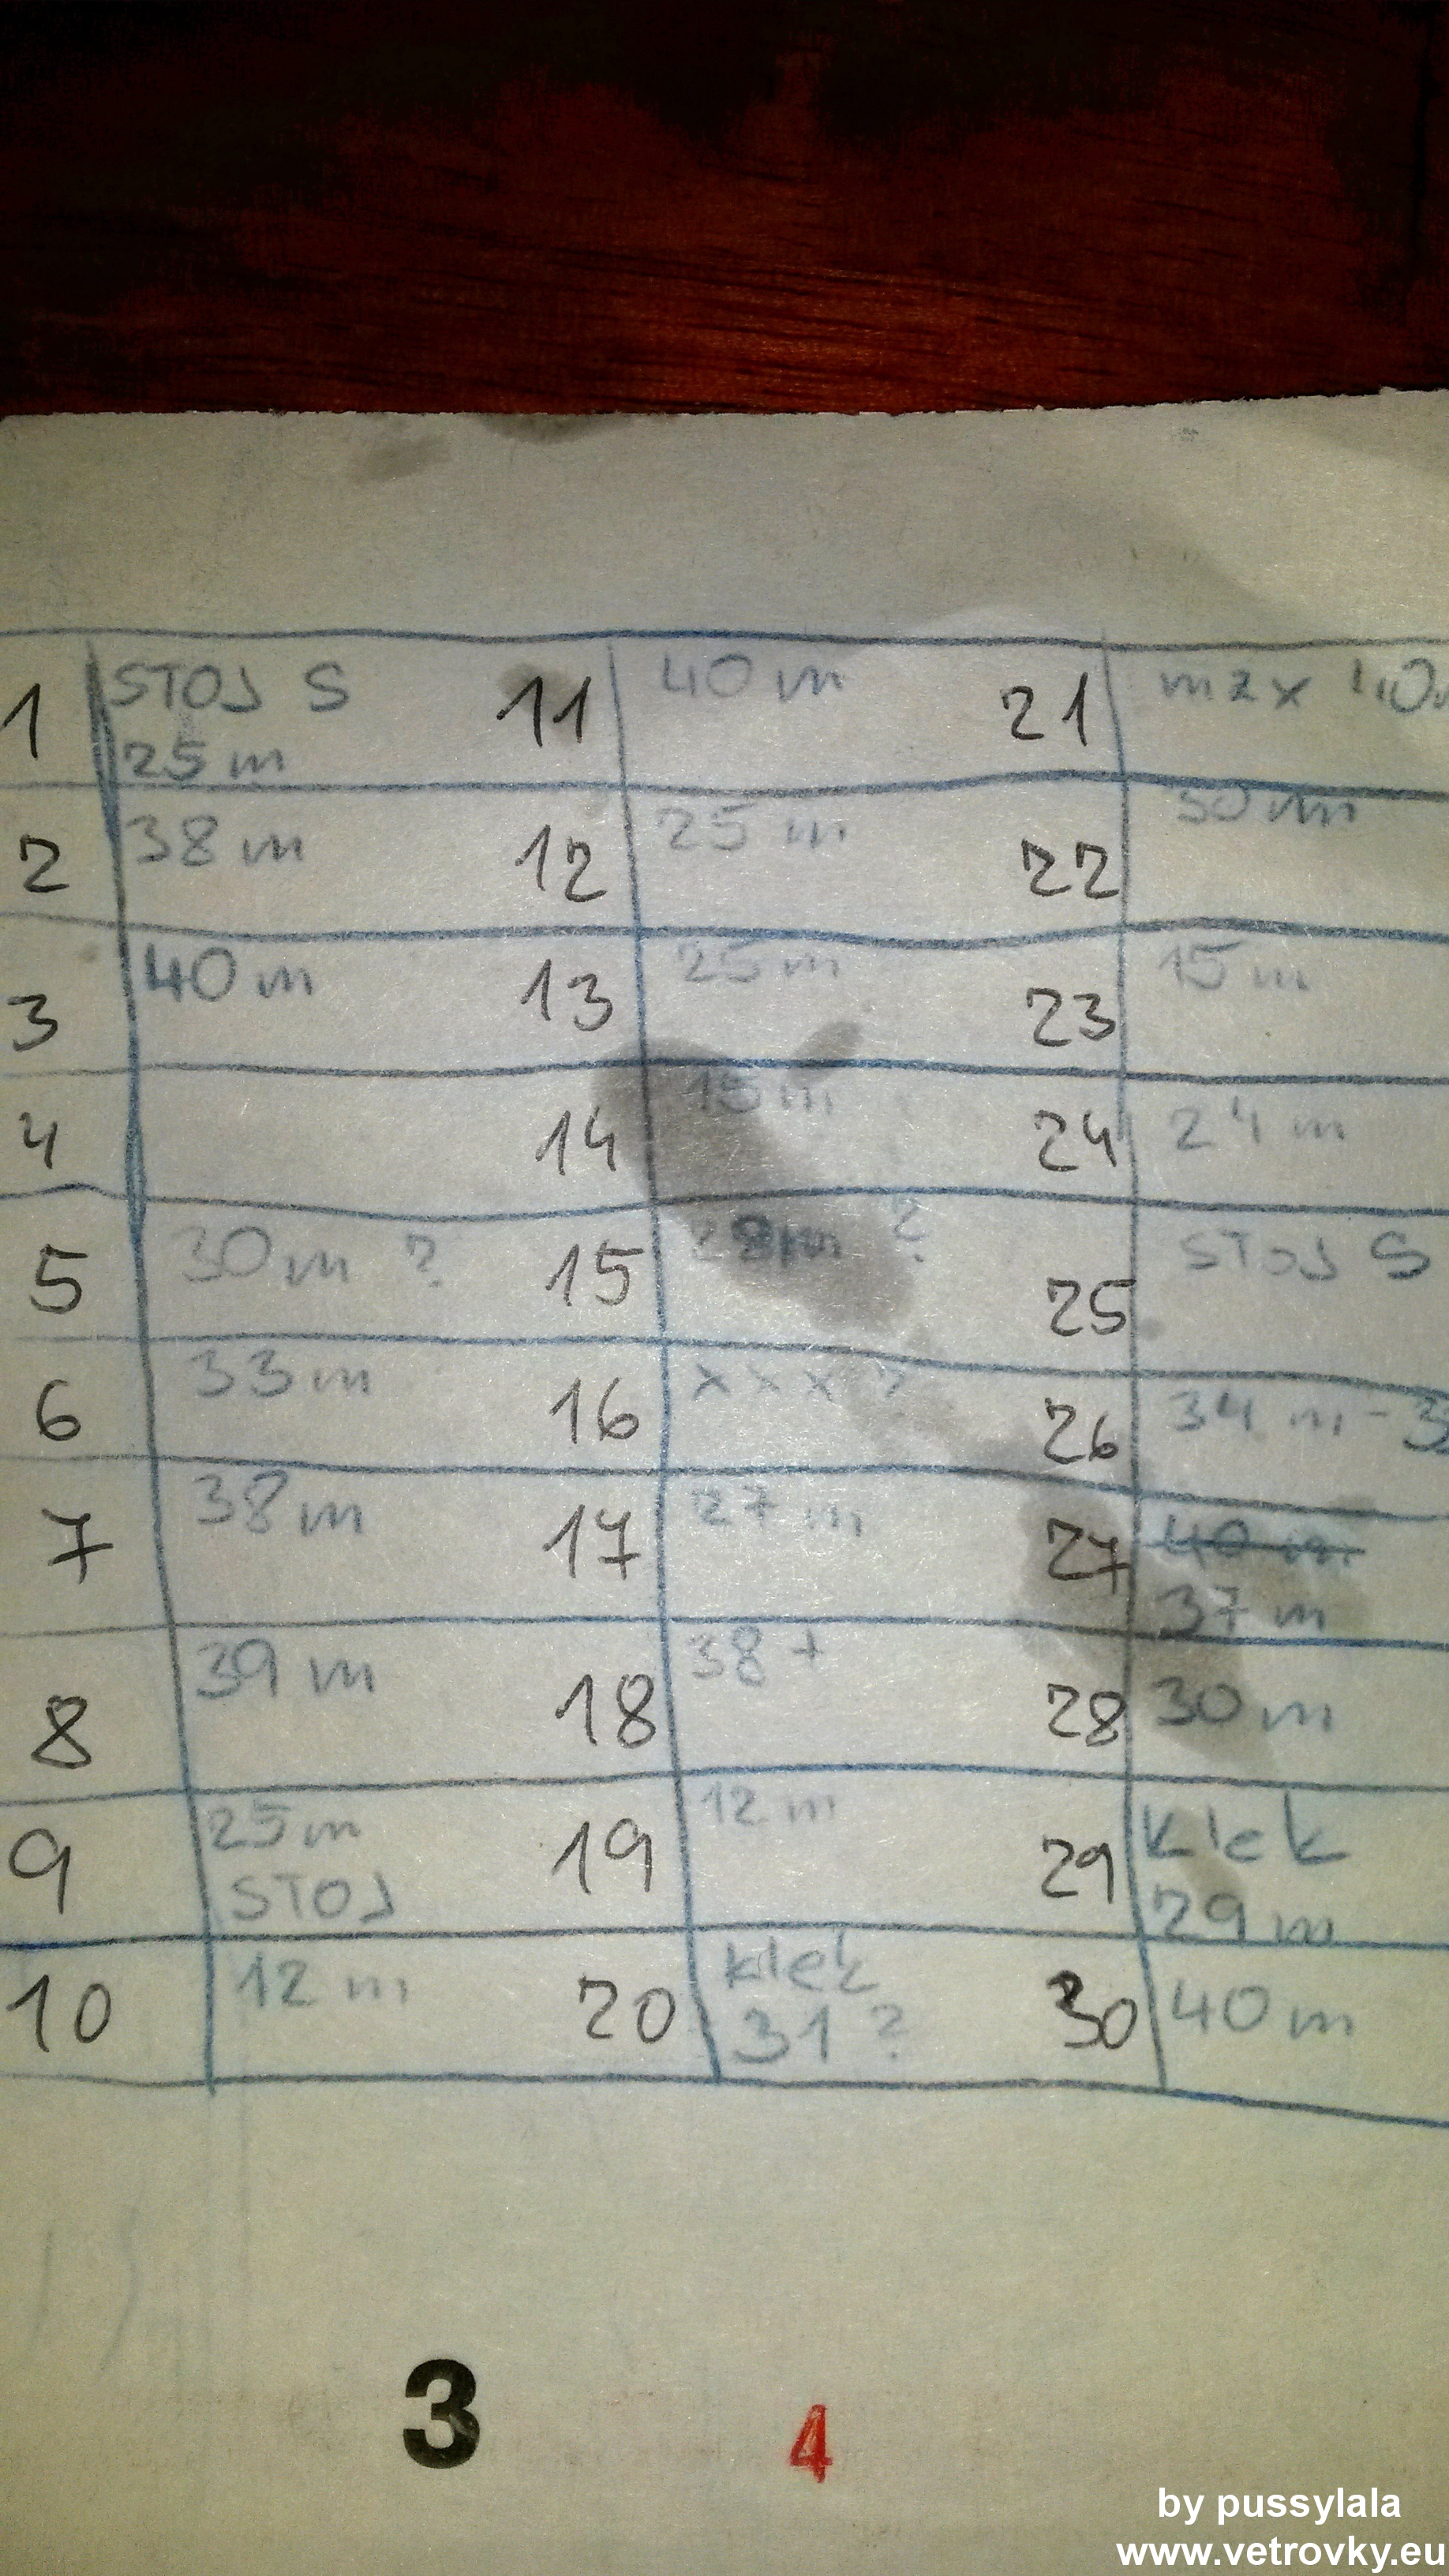 1 STOJ S 11 40 m 21 max 40
25 m
2 38 m 12 25 m 22 30 m
3 40 m 13 25 m 23 15 m
4 14 15 m 24 24 m
5 30 m ? 15 28 m ? 25 STOJ S
6 33 m 16 x x x ? 26 34 m -
7 38 m 17 27 m 27 40 m
37 m
8 39 m 18 38 + 28 30 m
9 25 m 19 12 m 29 klek
STOJ 29 m
10 12 m 20 klek 30 40 m
31 ?
3 4
by pussylala
www.vetrovky.eu